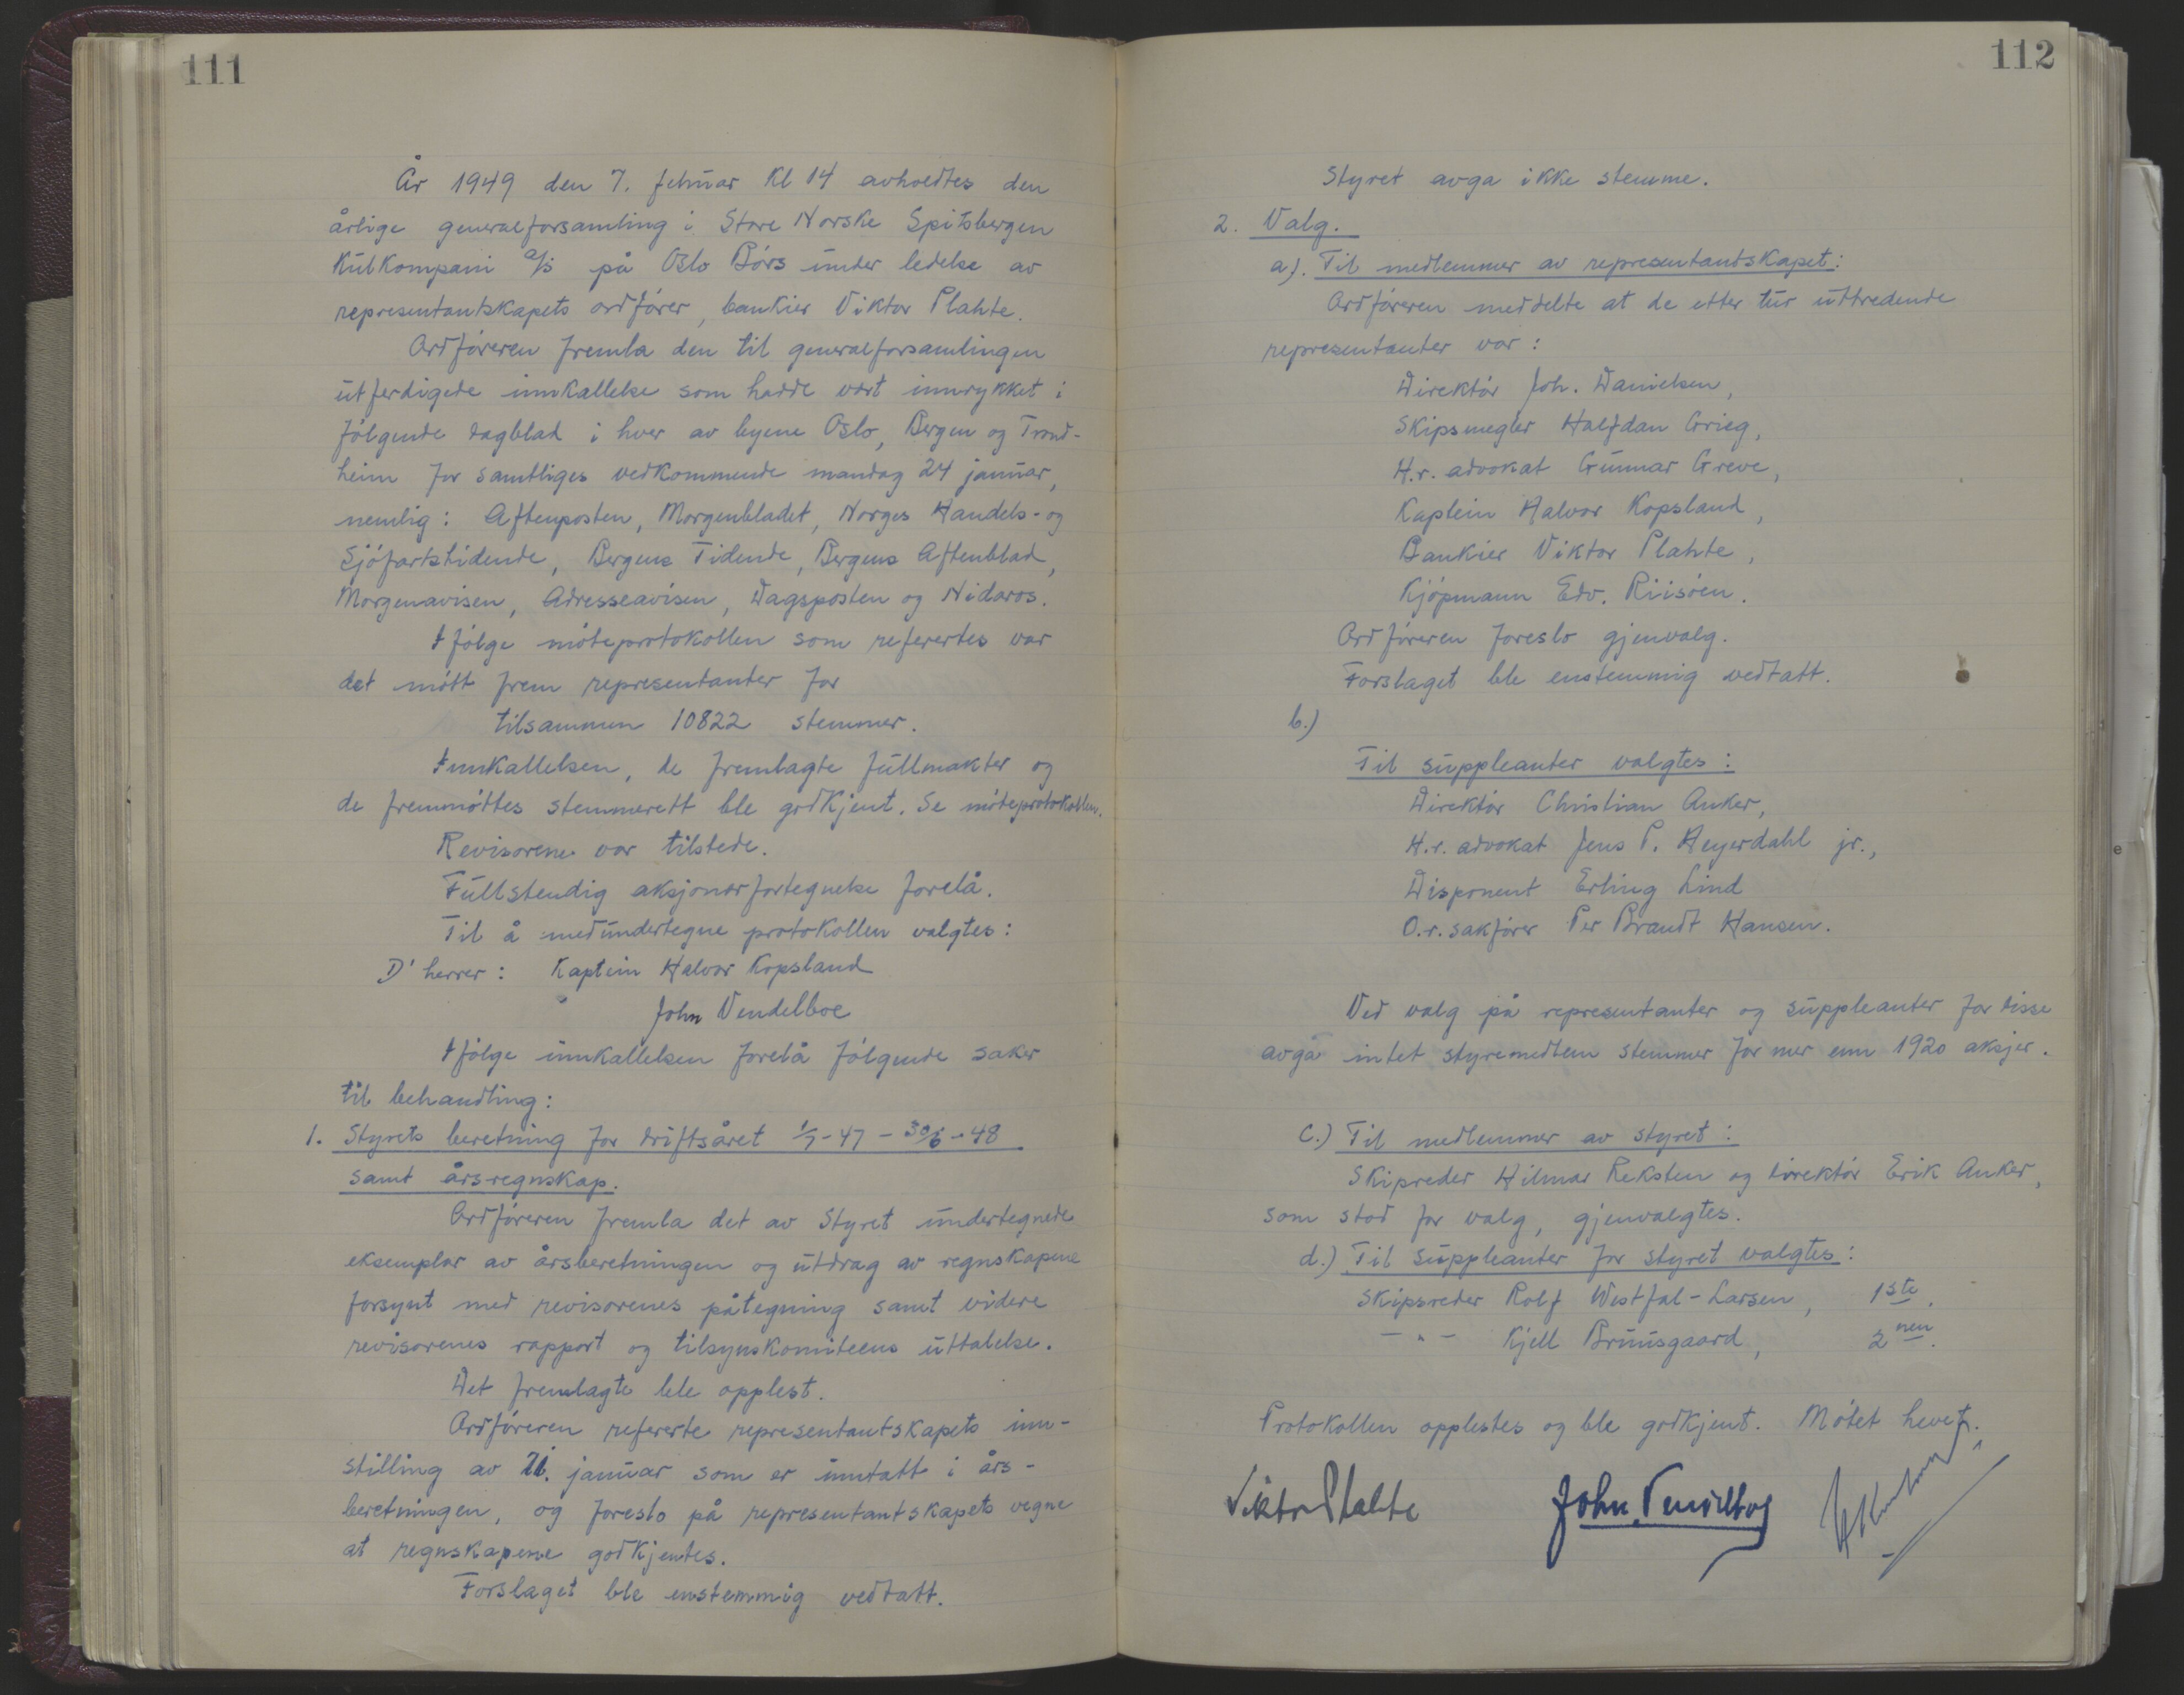 111
År 1949 den 7. februar kl 14 avholdtes den
årlige generalforsamling i Store Norske Spitsbergen
Kulkompani a/s på Oslo Børs under ledelse av
representantskapets ordfører, bankier Viktor Plahte.
Ordføreren fremla den til generalforsamlingen
utferdigede innkallelse som hadde vært innrykket i
følgende dagblad i hver av byene Oslo, Bergen og Trond-
heim for samtliges vedkommende mandag 24 januar,
nemlig: Aftenposten, Morgenbladet, Norges Handels- og
Sjøfartstidende, Bergens Tidende, Bergens Aftenblad,
Morgenavisen, Adresseavisen, Dagsposten og Nidaros.
Ifølge møteprotokollen som refertes var
det møtt frem representanter for
tilsammen 10822 stemmer.
Innkallelsen, de fremlagte fullmakter og
de fremmøttes stemmerett ble godkjent. Se møteprotokollen.
Revisorene var tilstede.
Fullstendig aksjonærfortegnelse forelå.
Til å medundertegne protokollen valgtes:
D'herrer: Kaptein Halvor Kopsland
John Vendelboe
Ifølge innkallelsen forelå følgende saker
til behandling:
1. Styrets beretning for driftsåret 1/7-47 - 30/6-48
samt årsregnskap.
Ordføreren fremla det av Styret undertegnede
eksemplar av årsberetningen og utdrag av regnskapene
forsynt med revisorenes påtegning samt videre
revisorenes rapport og tilsynskomiteens uttalelse.
Det fremlagte ble opplest.
Ordføreren refererte representantskapets inn-
stilling av 21. januar som er inntatt i års-
beretningen, og foreslo på representantskapets vegne
at regnskapene godkjentes.
Forslaget ble enstemmig vedtatt.
112
Styret avga ikke stemme.
2. Valg.
a). Til medlemmer av representantskapet:
Ordføreren meddelte at de etter tur uttredende
representanter var:
Direktør Joh. Danielsen,
Skipsmegler Halfdan Grieg,
H.r. advokat Gunnar Greve,
Kaptein Halvor Kopsland,
Bankier Viktor Plahte,
Kjøpmann Edv. Riisøen.
Ordføreren foreslo gjenvalg.
Forslaget ble enstemmig vedtatt.
b.)
Til suppleanter valgtes:
Direktør Christian Anker,
H.r. advokat Jens P. Heyerdahl jr.,
Disponent Erling Lind
O.r. sakfører Per Brandt Hansen.
Ved valg på representanter og suppleanter for disse
avga intet styremedlem stemmer for mer enn 1920 aksjer.
c.) Til medlemmer av styret:
Skipreder Hilmar Reksten og direktør Erik Anker,
som stod for valg, gjenvalgtes.
d.) Til suppleanter for styret valgtes:
Skipsreder Rolf Westfal-Larsen, 1ste.
— " — Kjell Bruusgaard, 2nen.
Protokollen opplestes og ble godkjent. Møtet hevet.
Viktor Plahte John Vendelboe